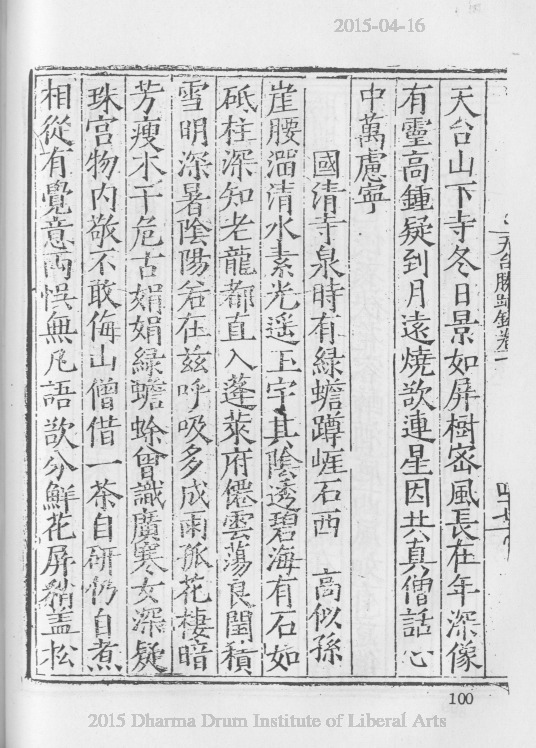 2015-04-16
天台勝蹟錄卷一
天台山下寺冬日景如屏樹密風長在年深像
有靈高鍾疑到月遠燒欲連星因共真僧話心
中萬慮寧
國清寺泉時有綠蟾蹲崕石西 高似孫
崖腰溜清水素光遥玉宇其陰透碧海有石如
砥柱深知老龍都直入蓬萊府僊雲蕩良閏積
雪明深暑陰陽若在茲呼吸多成雨孤花棲暗
芳瘦木干危古娟娟綠蟾蜍曾識廣寒女深疑
珠宫物内敬不敢侮山僧借一茶自研仍自煮
相從有覺意两悞無凡語欲分鮮花屏稍孟松
100
2015 Dharma Drum Institute of Liberal Arts